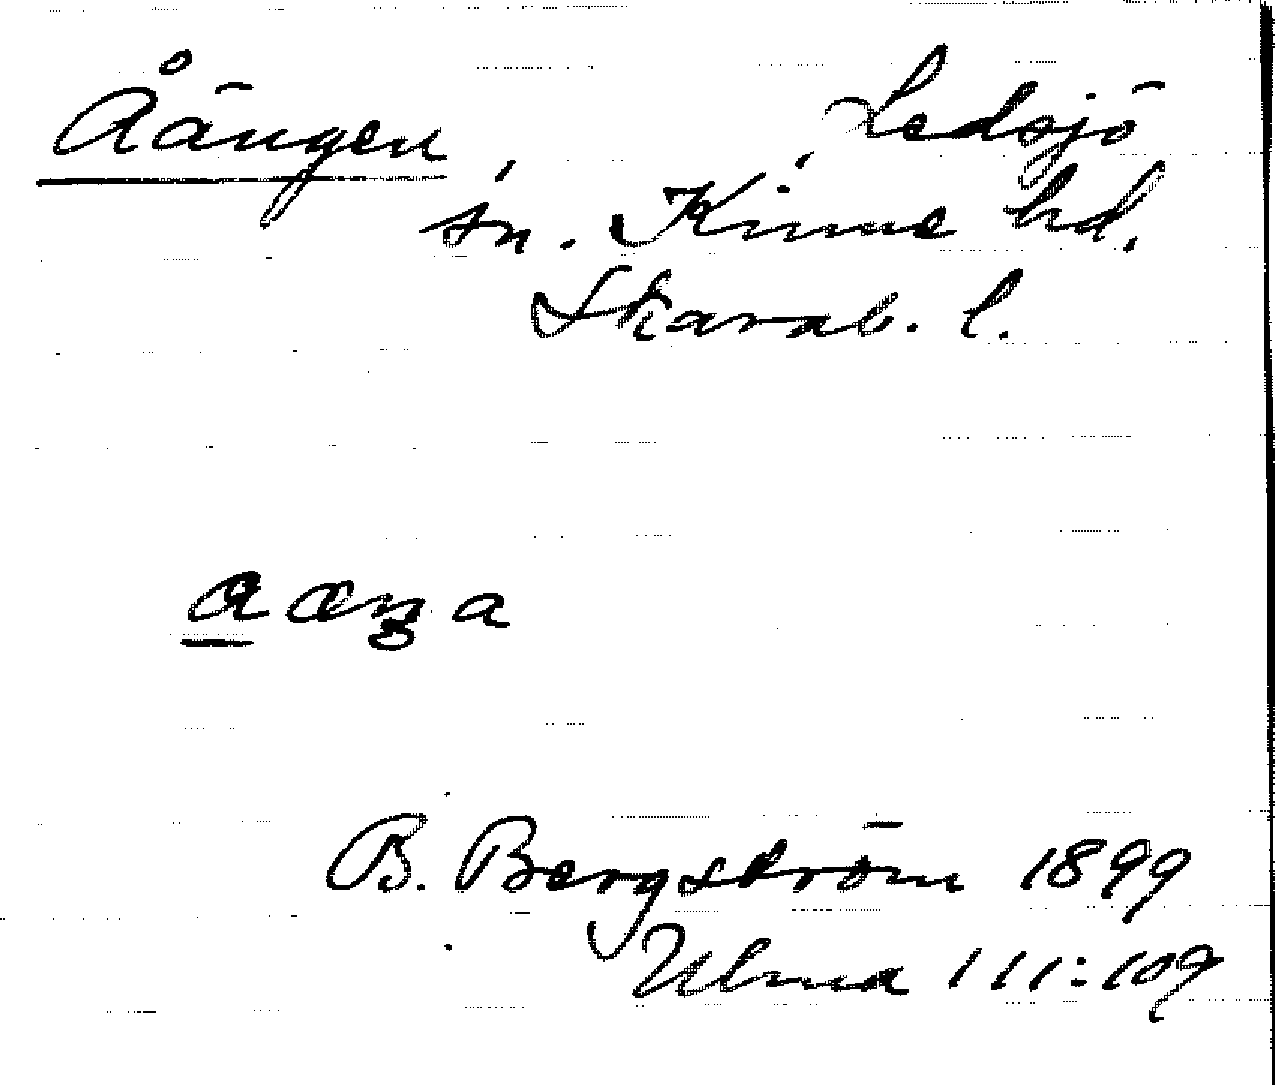 Åängen, Ledsjö
sn. Kinne hd.
Skarab. l.
B. Bergström 1899
Ulma 111:109